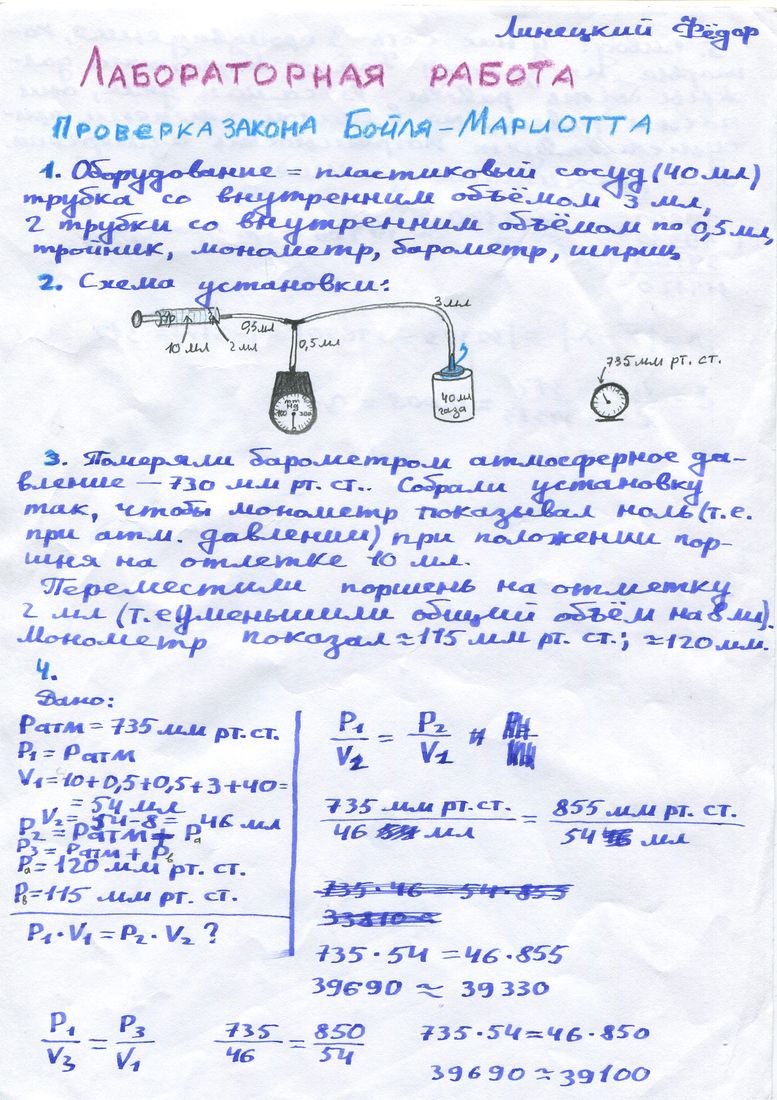 Линецкий Фёдор
ЛАБОРАТОРНАЯ РАБОТА
ПРОВЕРКА ЗАКОНА БОЙЛЯ-МАРИОТТА
1. Оборудование = пластиковый сосуд (40 мл)
трубка со внутренним объёмом 3 мл,
2 трубки со внутренним объёмом по 0,5 мл,
тройник, монометр, барометр, шприц
2. Схема установки:
3 мл
0,5 мл
10 мл
2 мл
0,5 мл
735 мм рт. ст.
mm
Hg
300
40 мл
газа
3. Померяли барометром атмосферное да-
вление — 730 мм рт. ст.. Собрали установку
так, чтобы монометр показывал ноль (т.е.
при атм. давлении) при положении пор-
шня на отметке 10 мл.
Переместили поршень на отметку
2 мл (т.е уменьшили общий объём на 8 мл).
Монометр показал ≈115 мм рт. ст.; ≈120 мм.
4.
Дано:
Pатм = 735 мм рт. ст.
P1 = Pатм
V1 = 10+0,5+0,5+3+40=
= 54 мл
V2 = 54-8 = 46 мл
P2 = Pатм + Pа
P3 = Pатм + Pв
Pа = 120 мм рт. ст.
Pв = 115 мм рт. ст.
P1 · V1 = P2 · V2 ?
P1/V2 = P2/V1 и
735 мм рт. ст./46 мл = 855 мм рт. ст./54 мл
735 · 46 = 54 · 855
33810 =
735 · 54 = 46 · 855
39690 ≈ 39330
P1/V3 = P3/V1
735/46 = 850/54
735 · 54 = 46 · 850
39690 ≈ 39100